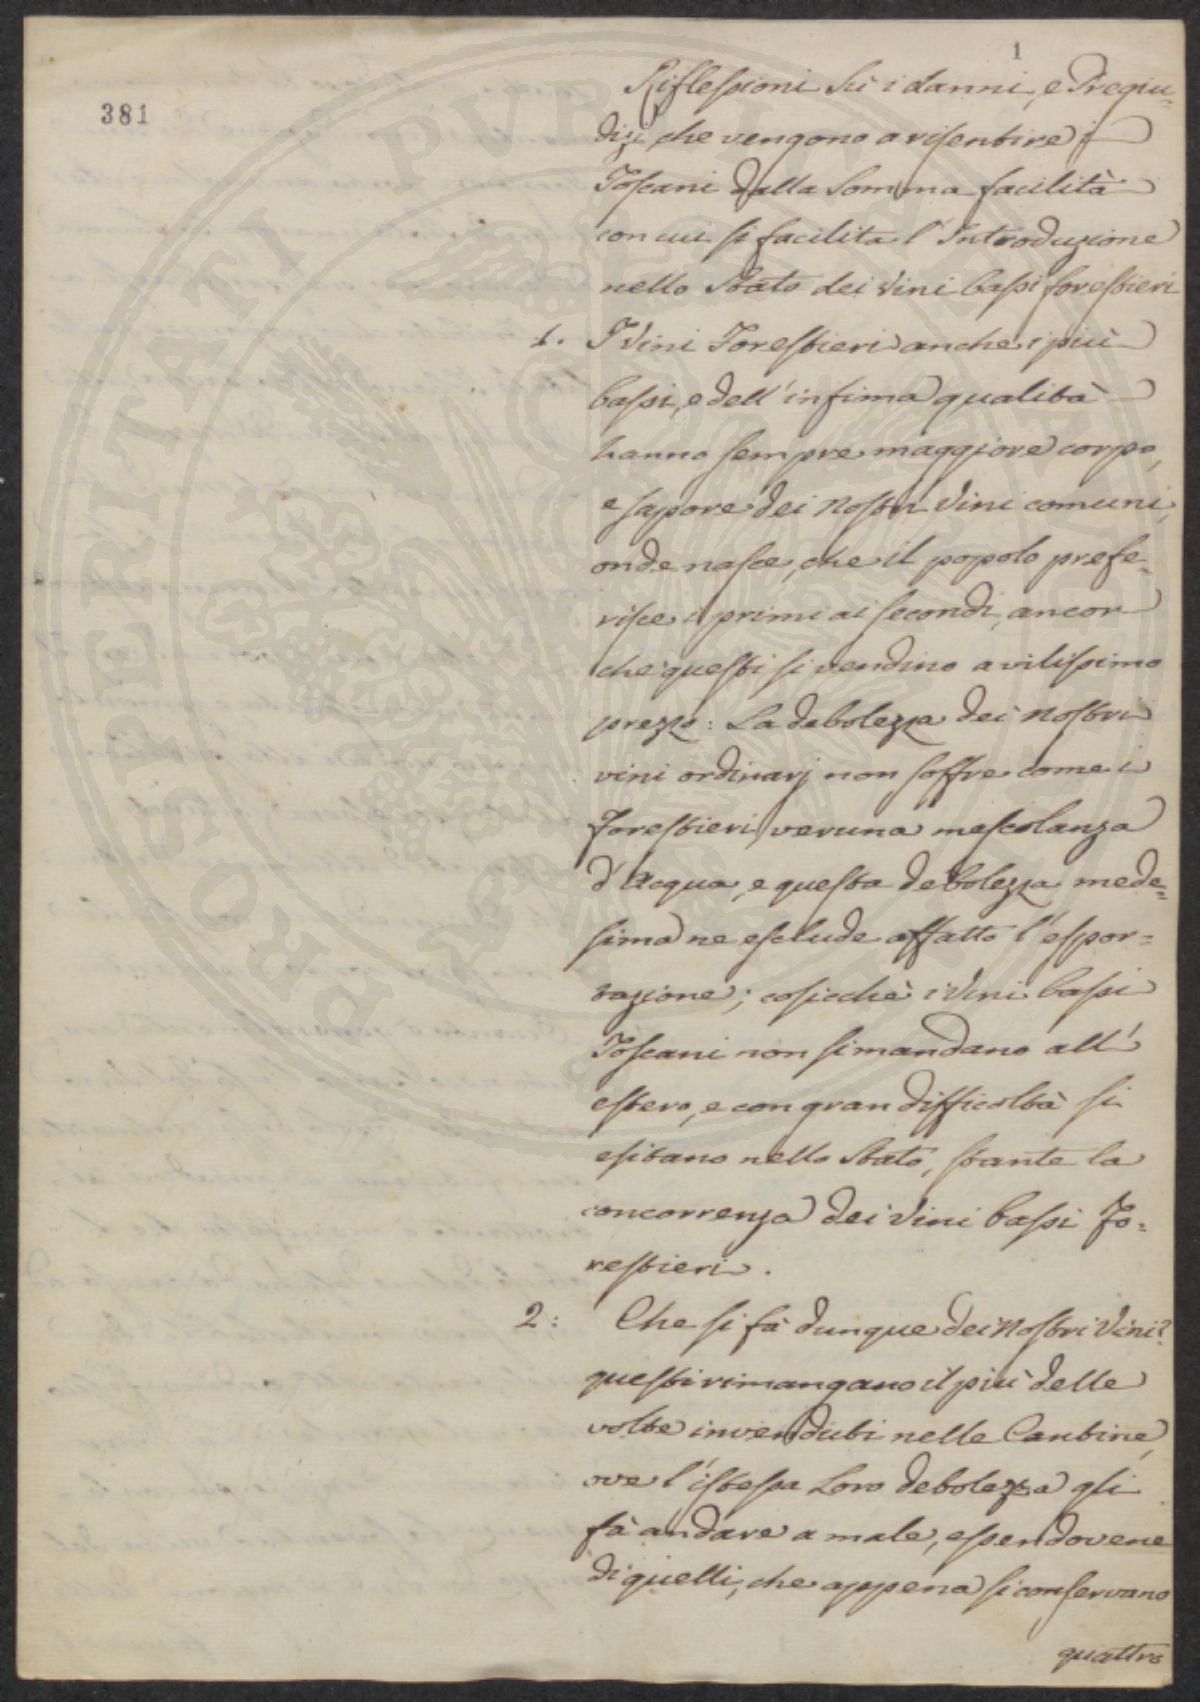 1
381
Riflessioni sù i danni, e Pregiu=
dizj che vengono a risentire i
Toscani dalla somma facilità
con cui si facilita l'Introduzione
nello Stato dei Vini bassi forestieri
1. I Vini Forestieri anche i più
bassi, e dell'infima qualità
hanno sempre maggiore corpo,
e sapore dei Nostri Vini comuni,
onde nasce, che il popolo prefe=
risce i primi ai secondi, ancor
che questi si vendino a vilissimo
prezzo: La debolezza dei Nostri
vini ordinarj non soffre come i
Forestieri veruna mescolanza
d'Acqua, e questa debolezza mede=
sima ne esclude affatto l'espor=
tazione; cosicchè i Vini bassi
Toscani non si mandano all'
estero, e con gran difficoltà si
esitano nello Stato, stante la
concorrenza dei Vini bassi Fo=
restieri.
2: Che si fà dunque dei Nostri Vini?
questi rimangano il più delle
volte invenduti nelle Cantine,
ove l'istessa Loro debolezza gli
fà andare a male, essendovene
di quelli, che appena si conservano
quattro
PUBLICAE
PROSPERITATI